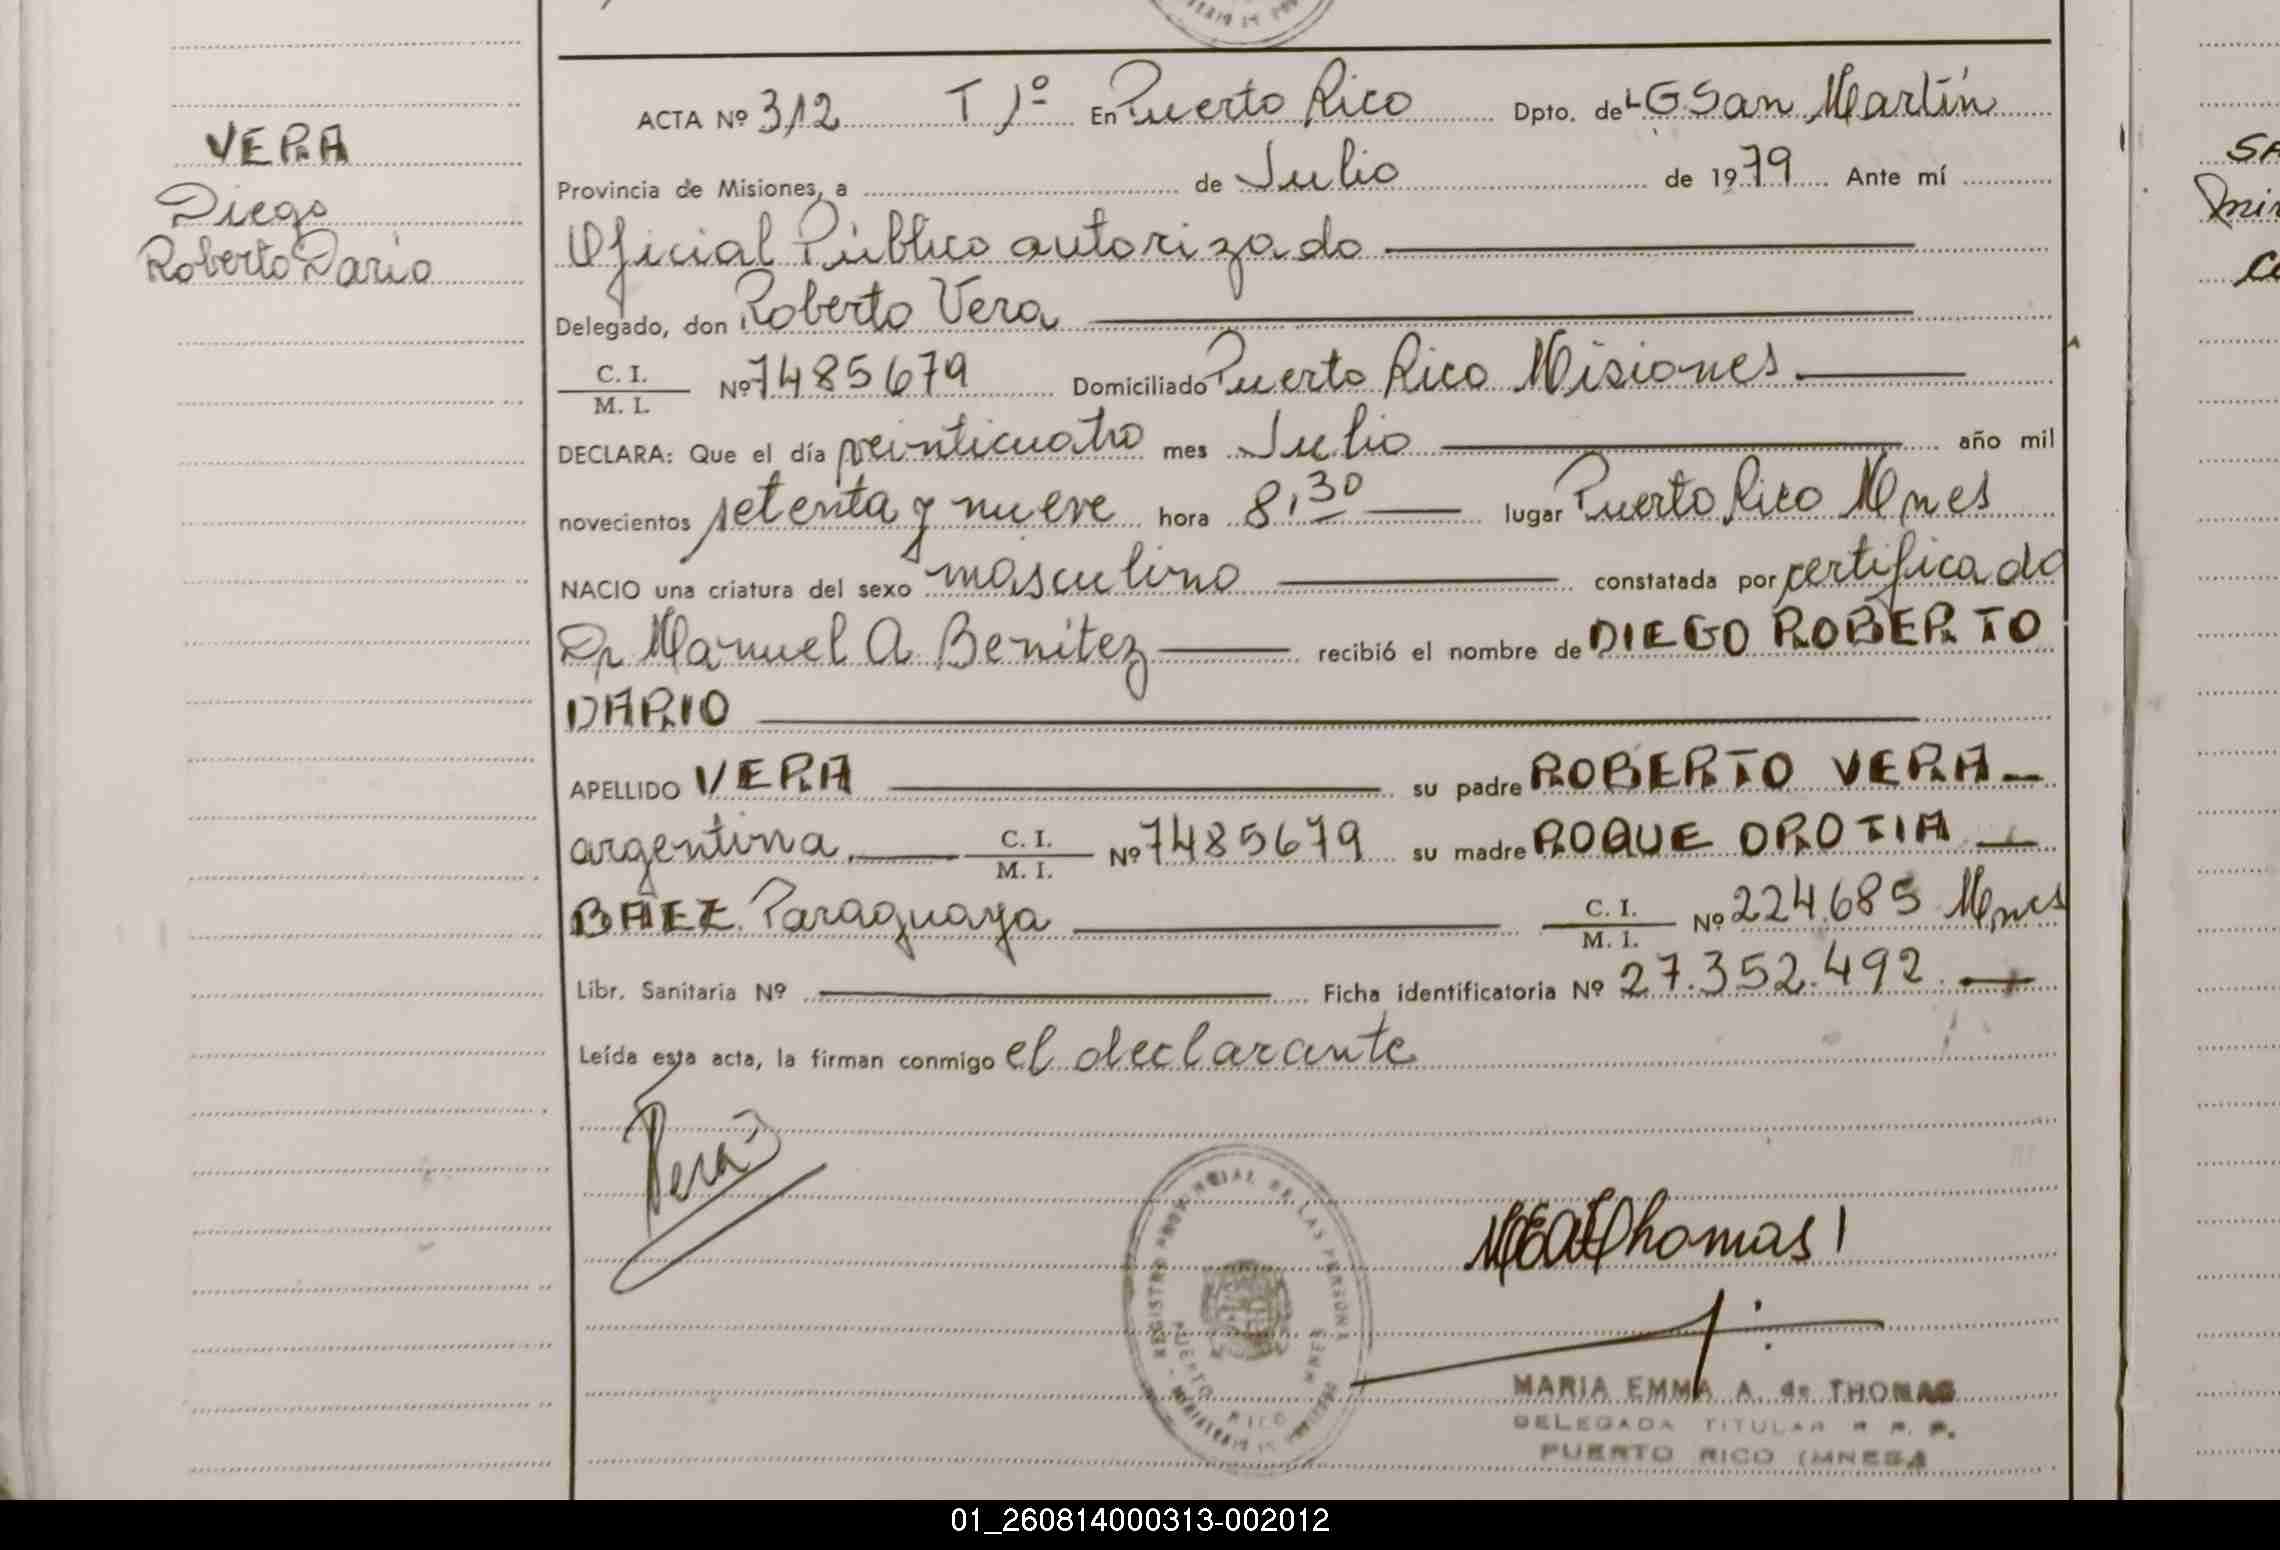 VERA
Diego
Roberto Dario
ACTA Nº 312 T 1º En Puerto Rico Dpto. de L G San Martín
Provincia de Misiones, a de Julio de 1979 Ante mí
Oficial Público autorizado
Delegado, don Roberto Vera
C. I.
M. I. Nº 7485679 Domiciliado Puerto Rico Misiones
DECLARA: Que el día veinticuatro mes Julio año mil
novecientos setenta y nueve hora 8,30 lugar Puerto Rico Mnes
NACIO una criatura del sexo masculino constatada por certificado
Dr Manuel A Benitez recibió el nombre de DIEGO ROBERTO
DARIO
APELLIDO VERA su padre ROBERTO VERA
argentina C. I. M. I. Nº 7485679 su madre ROQUE OROTIA
BAEZ Paraguaya C. I. M. I. Nº 224.685 Mnes
Libr. Sanitaria Nº Ficha identificatoria Nº 27.352.492
Leída esta acta, la firman conmigo el declarante
Vera
Thomas
REGISTRO PROVINCIAL DE LAS PERSONAS
PUERTO RICO MNES
MARIA EMMA A. de THOMAS
DELEGADA TITULAR R. R. P.
PUERTO RICO (MNES)
01_260814000313-002012